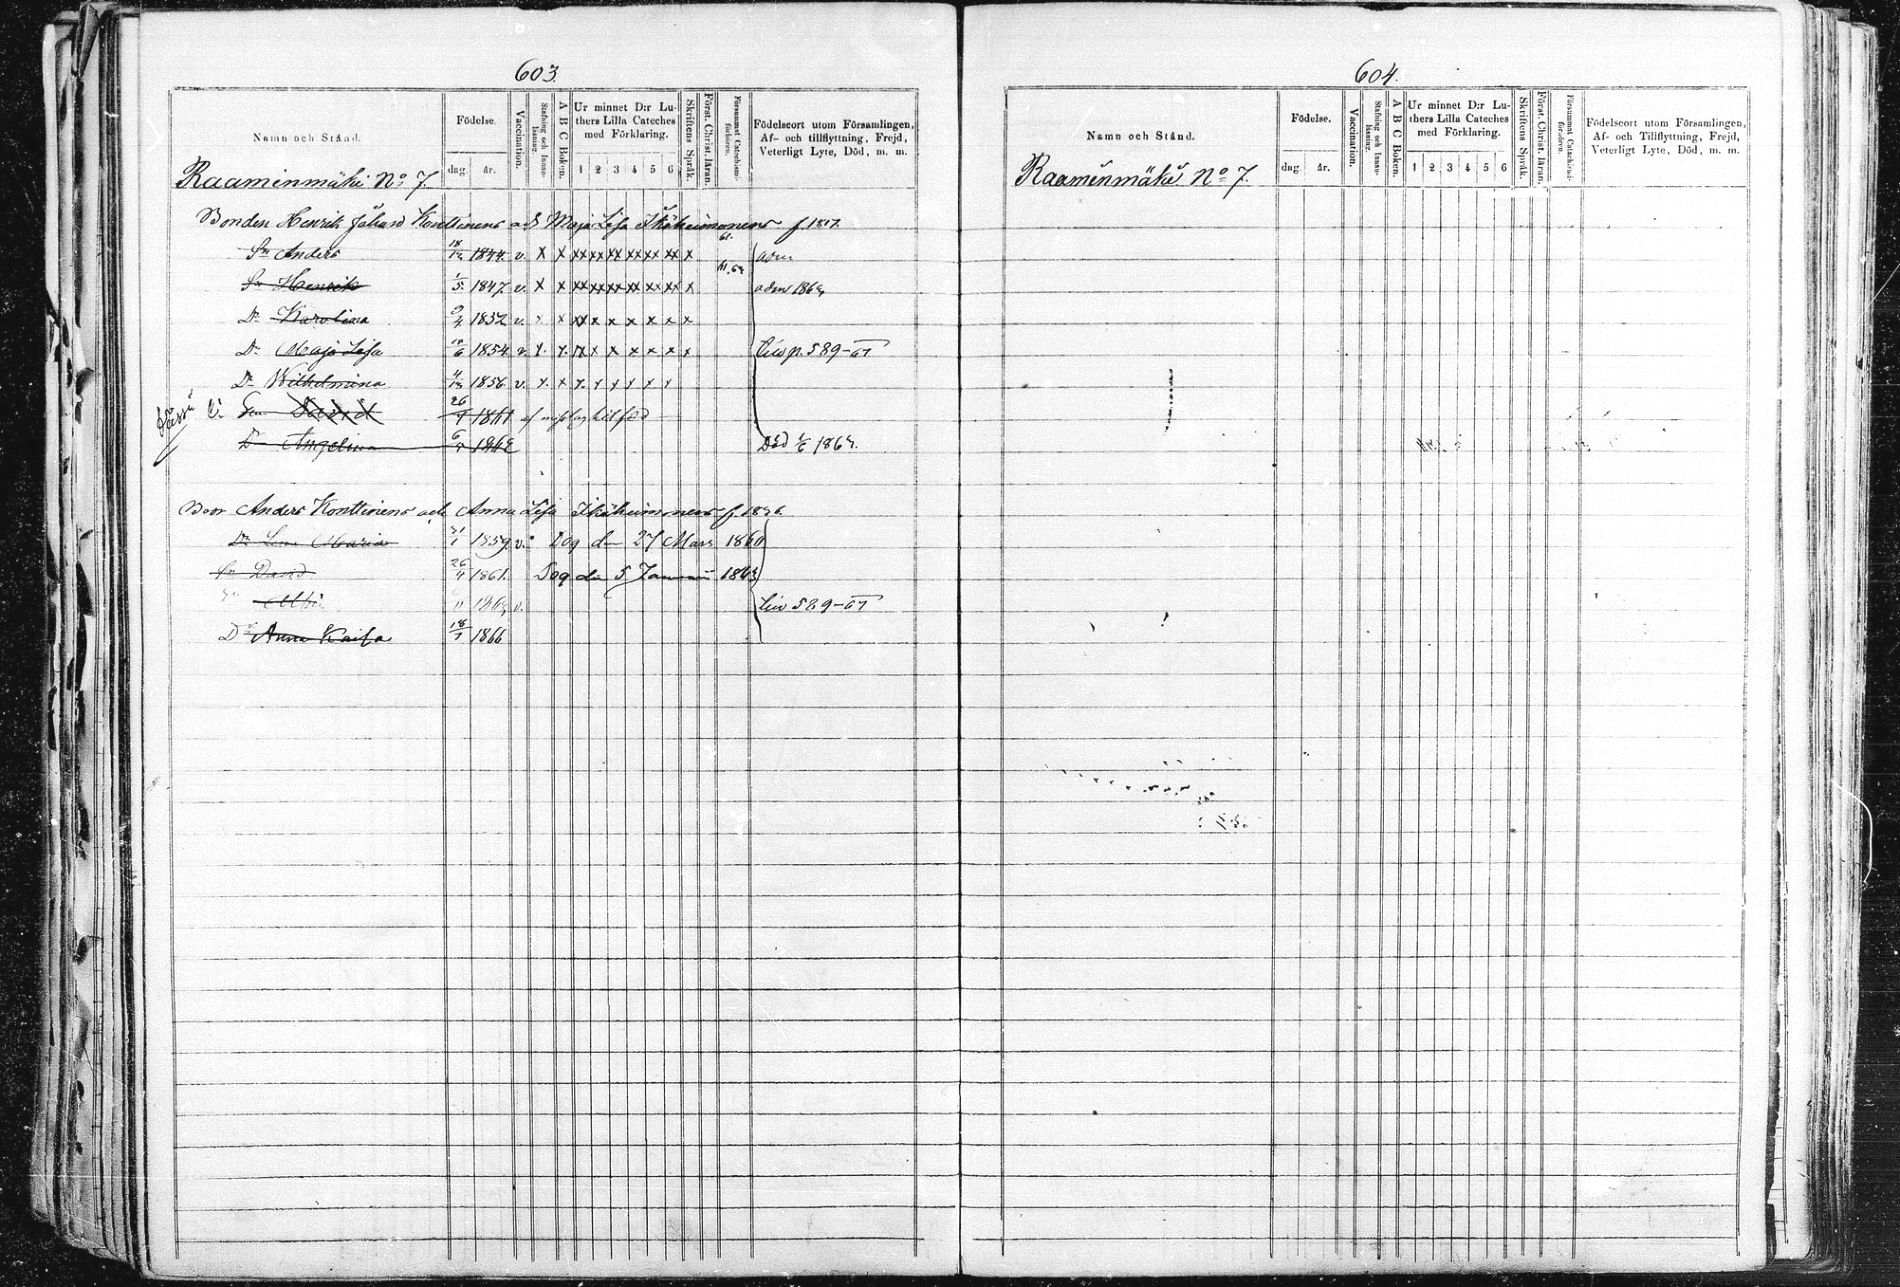 603.
Namn och Stånd.
Födelse.
dag. år.
Vaccination.
Stafning och Innanläsning.
A B C Boken.
Ur minnet D:r Lu-
thers Lilla Cateches
med Förklaring.
1 2 3 4 5 6
Skriftens Språk.
Förståt. Christ. läran.
Försummat Catechismi-förhören.
Födelseort utom Församlingen,
Af- och tillflyttning, Frejd,
Veterligt Lyte, Död, m. m.
Raaminmäki No 7.
Bonden Henrik Konttinens Maja Lisa f. 1817.
Sn Anders 18/12 1844 v. x x xx xx xx xx xx xx x adm
Sn Henrik 1/5 1847 v. x x xx xx xx xx xx xx x adm 186
Dr Karolina 9/4 1852 v. x x xx x x x x x x
Dr Maja Lisa 10/6 1854 v. x. x. x x x x x x x p. 589-
Dr Wilhelmina 4/12 1856 v. x. x x. x x x x x
Sn David 26/4 1861
Dr Angelina 6/ Död 1/6 186
Anders Konttinens och Anna Lisa f. 1836.
Dr Lena Maria 31/1 1859 v. Dog den 27 Mars
Sn David 26/4 1861. Dog den 5 Januari
v. 589-
Dr Anna Kaisa 18/7 1866
604.
Namn och Stånd.
Födelse.
dag. år.
Vaccination.
Stafning och Innanläsning.
A B C Boken.
Ur minnet D:r Lu-
thers Lilla Cateches
med Förklaring.
1 2 3 4 5 6
Skriftens Språk.
Förståt. Christ. läran.
Försummat Catechismi-förhören.
Födelseort utom Församlingen,
Af- och Tillflyttning, Frejd,
Veterligt Lyte, Död, m. m.
Raaminmäki No 7.